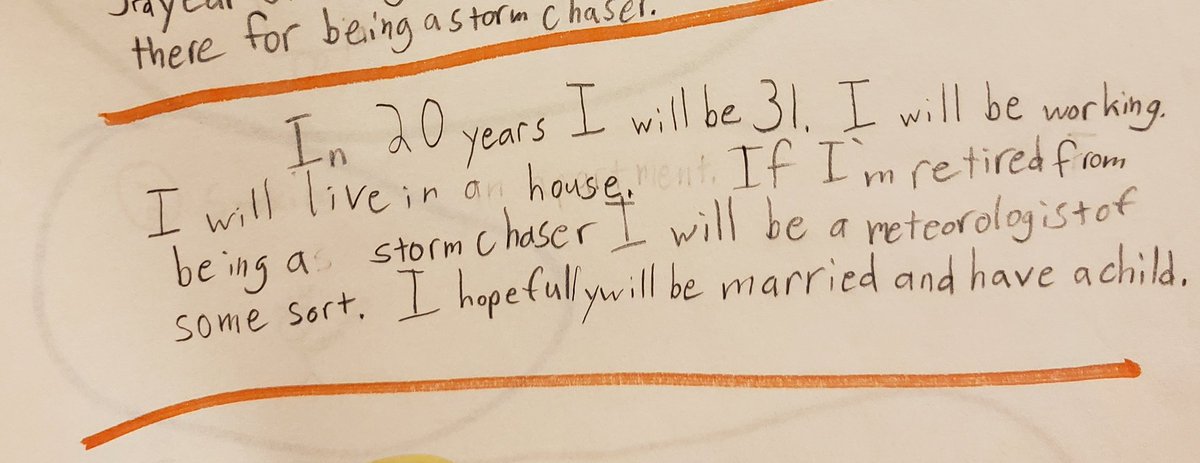 3rd year
there for being a storm chaser.
In 20 years I will be 31. I will be working.
I will live in a house. If I'm retired from
being a storm chaser I will be a meteorologist of
some sort. I hopefully will be married and have a child.